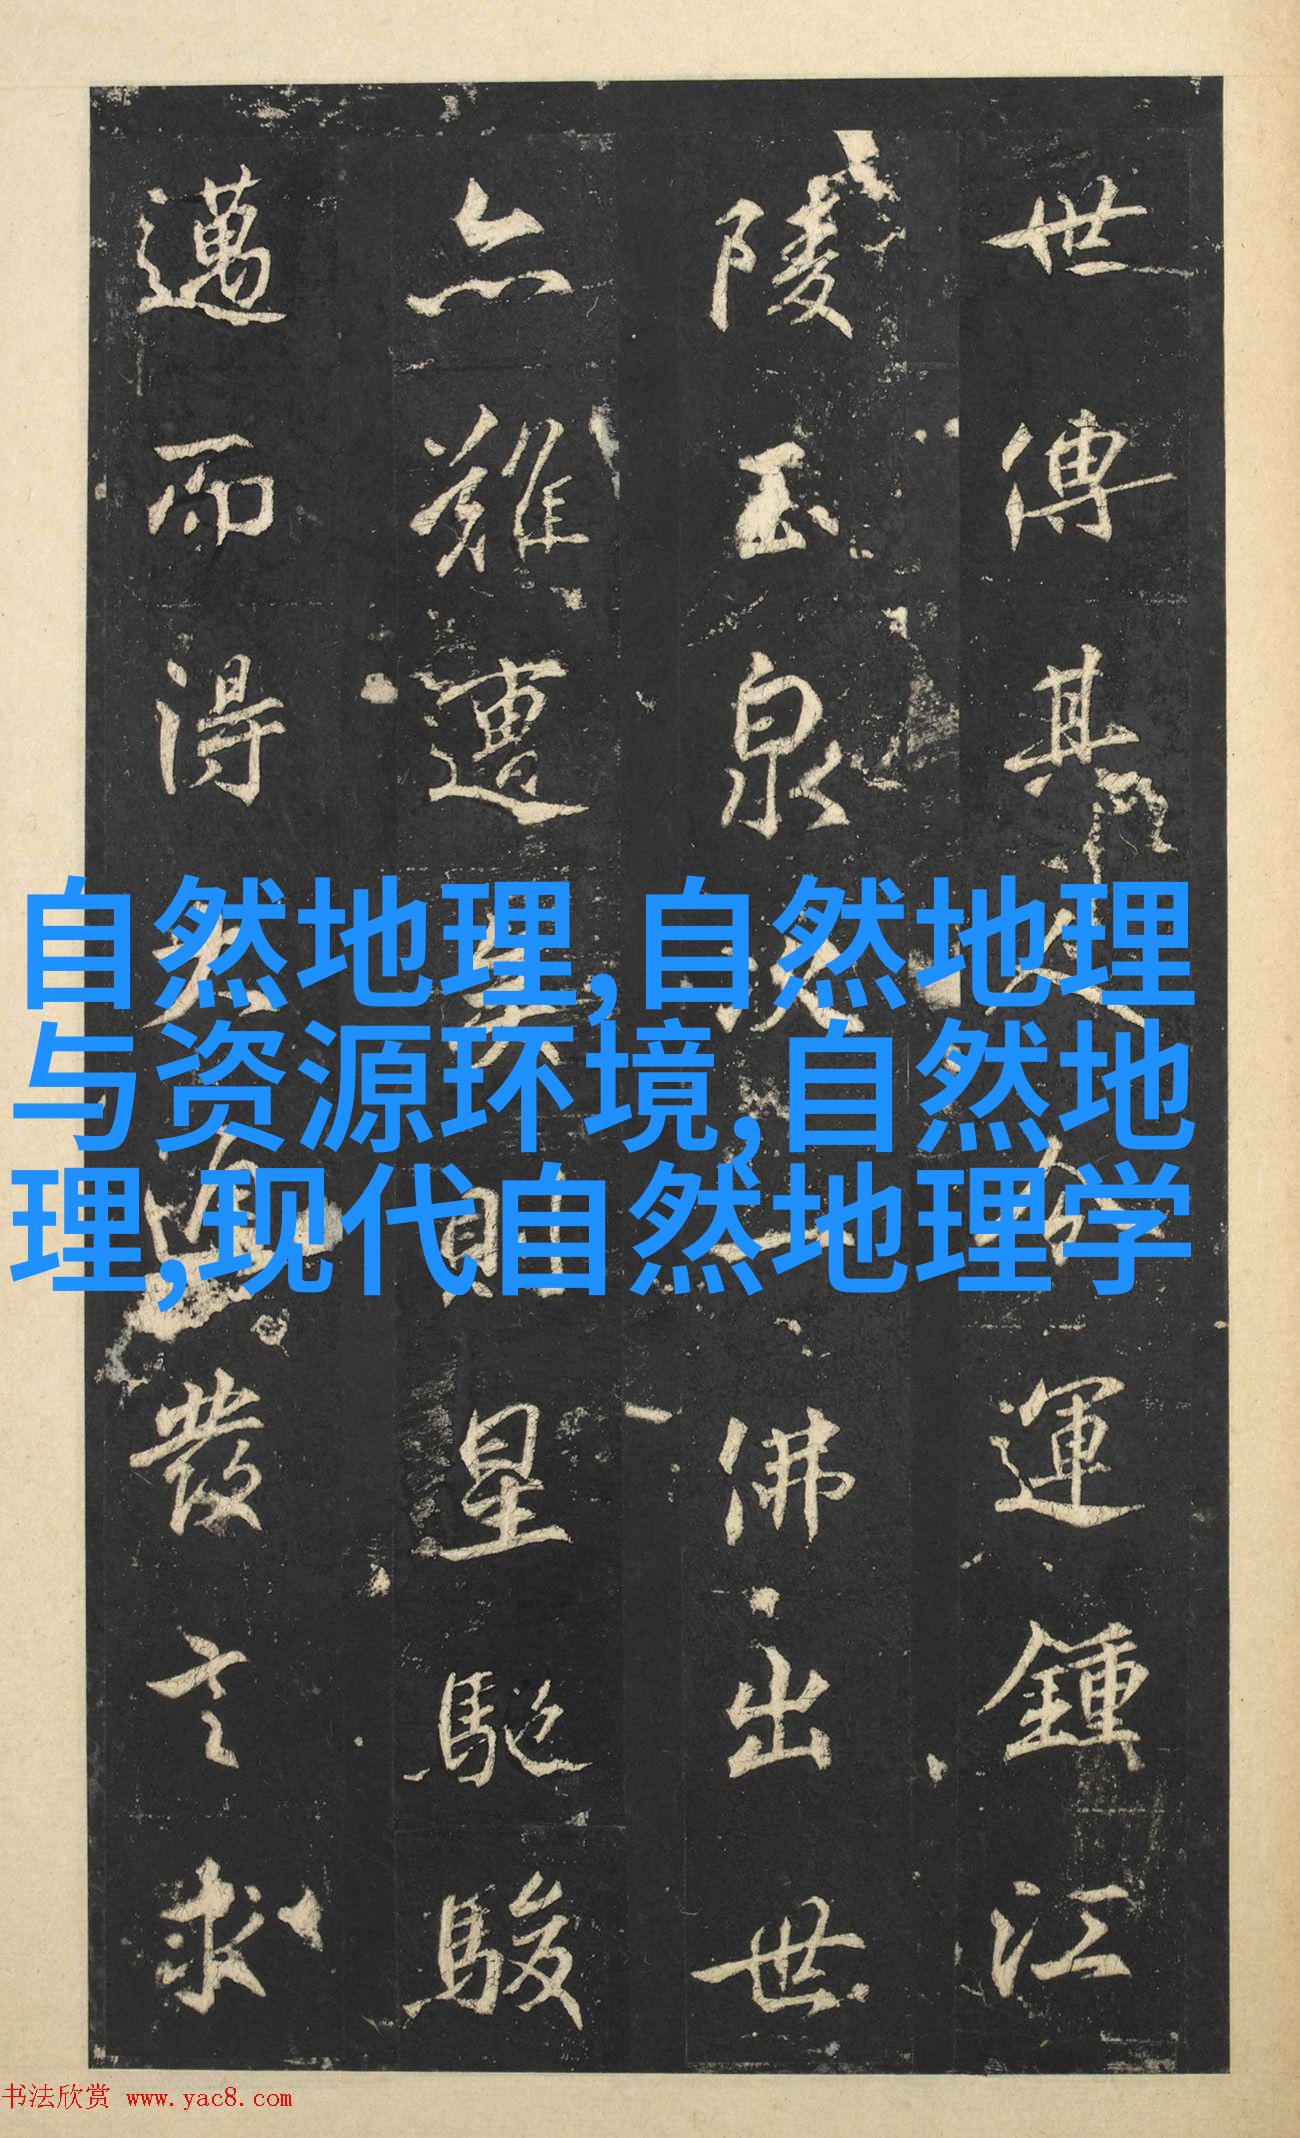 自然地理,自然地理
与资源环境,自然地
理,现代自然地理学
世傳其運鍾江
陵玉泉佛出世
亦難遭則星馳駿
邁而得發言求
书法欣赏 www.yac8.com